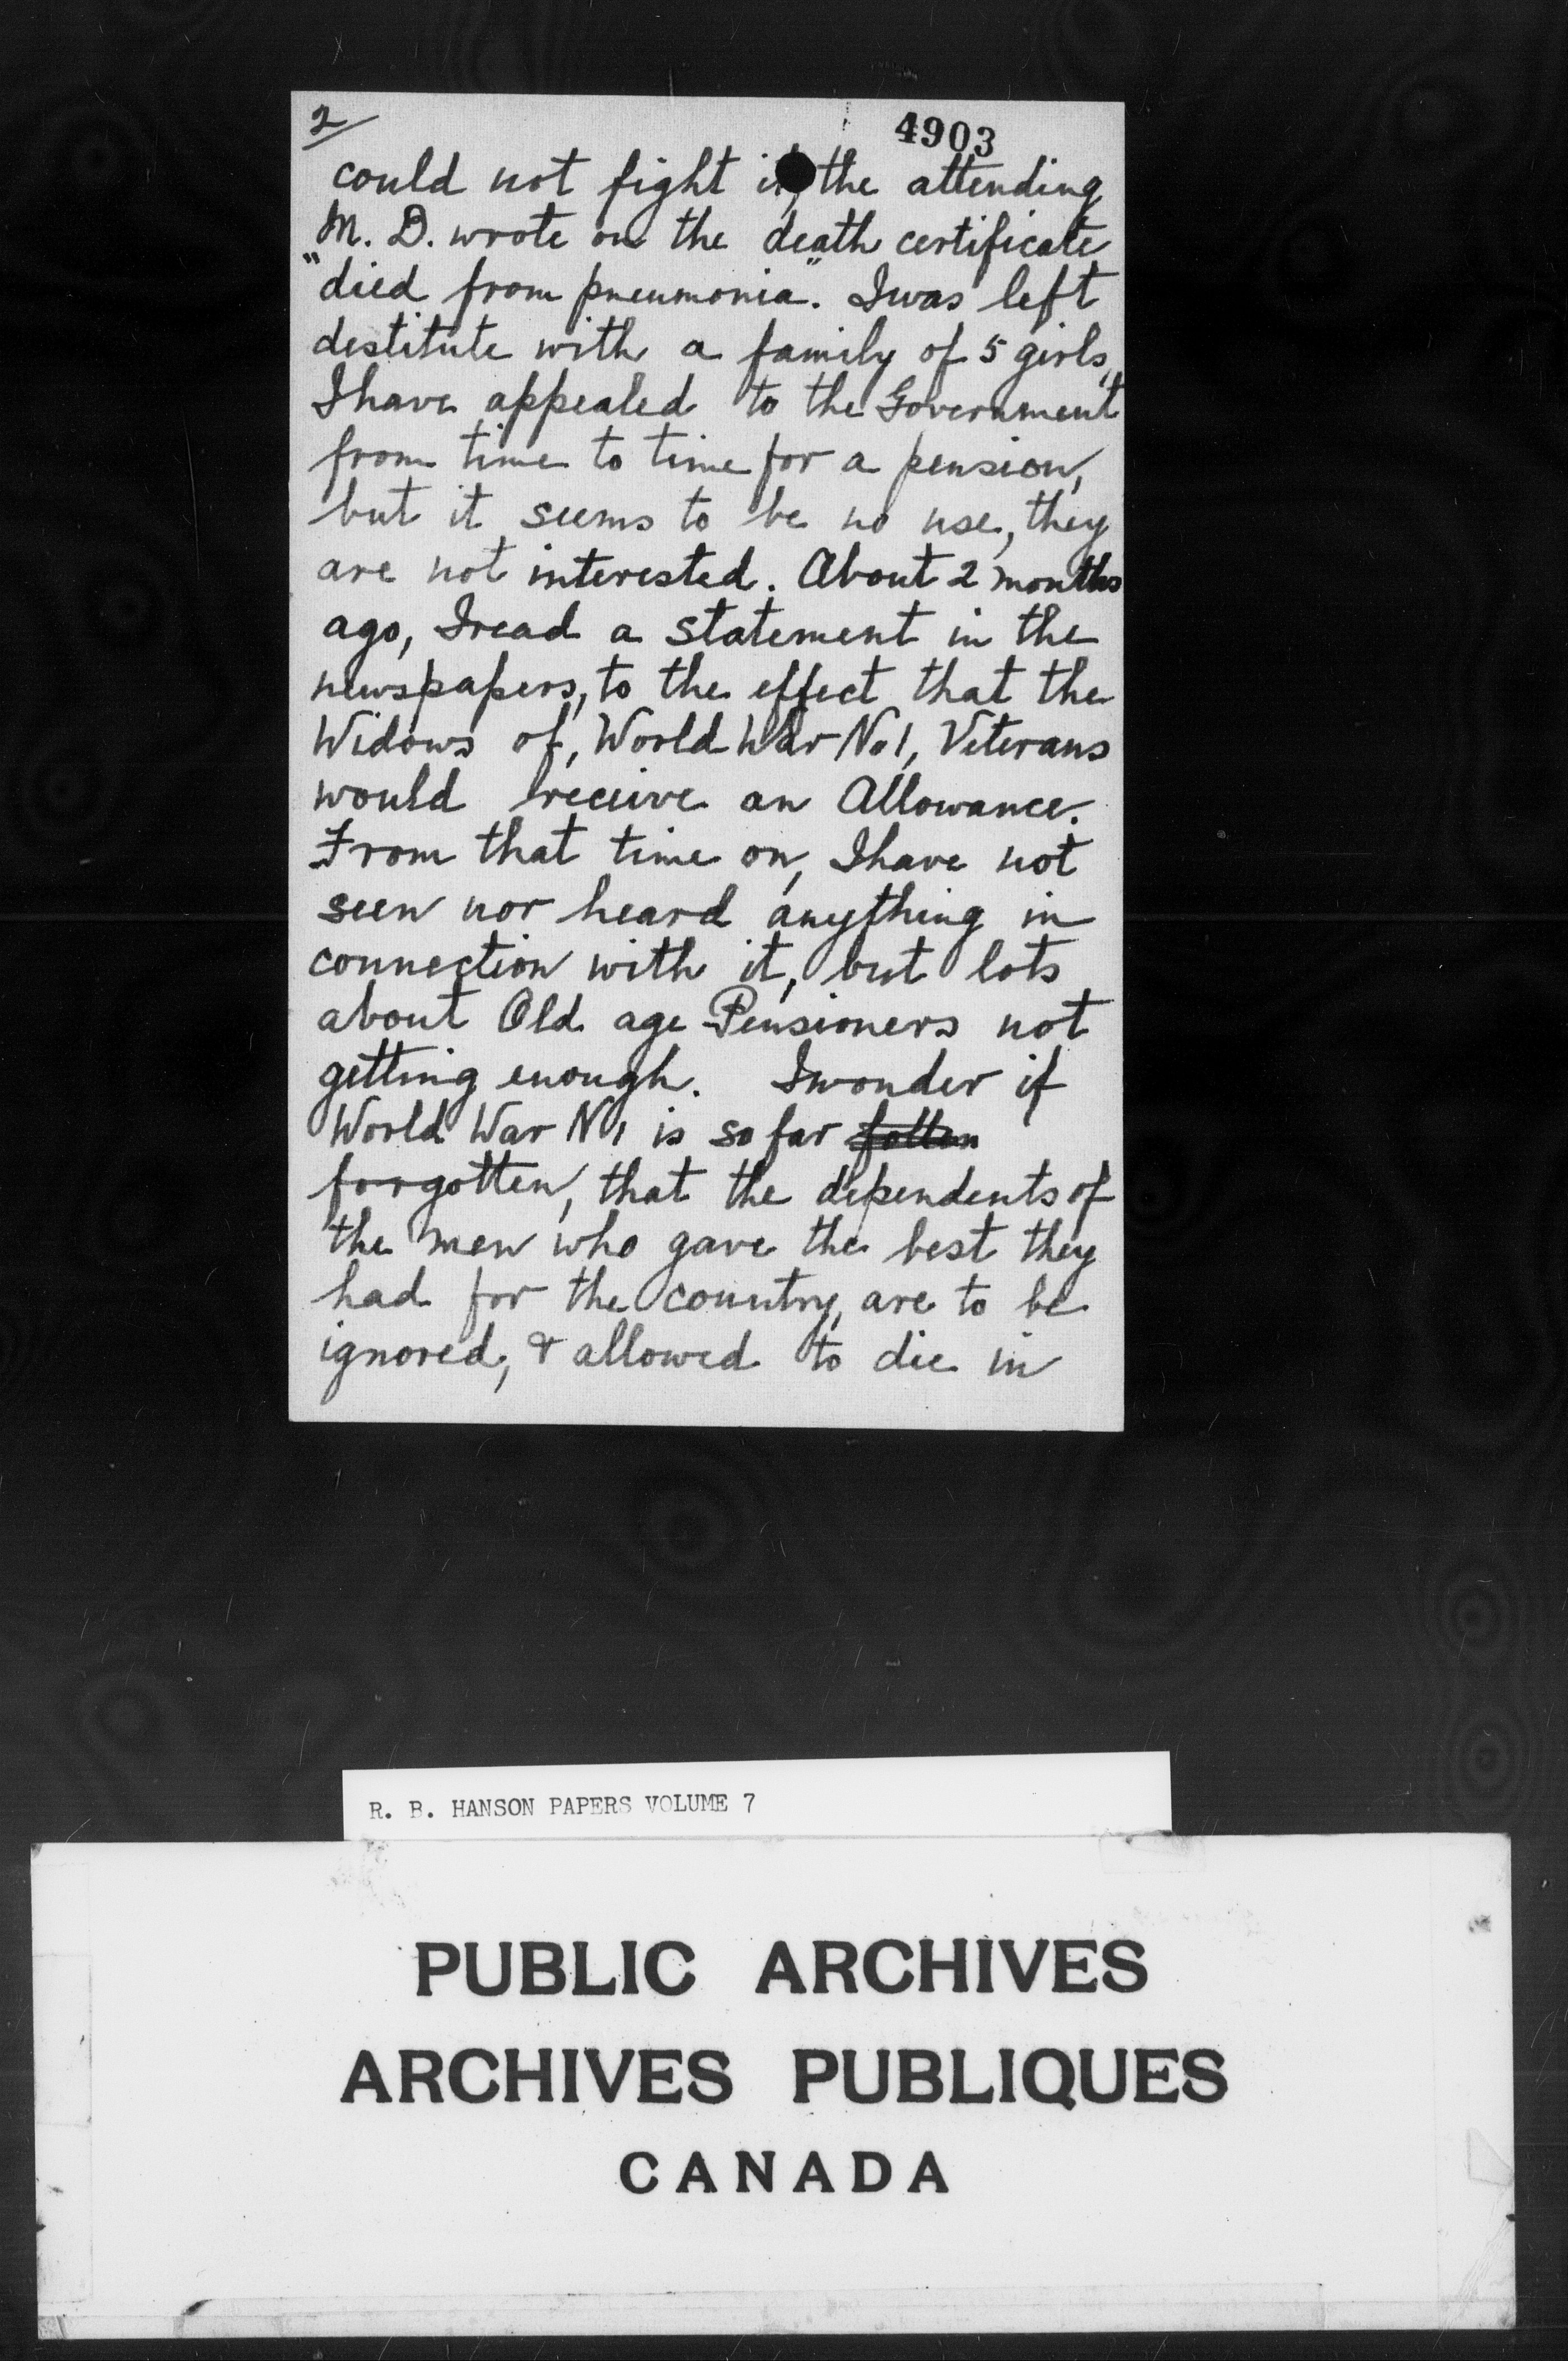 2
4903
could not fight it, the attending
M. D. wrote on the death certificate
"died from pneumonia". I was left
destitute with a family of 5 girls,
I have appealed to the Government
from time to time for a pension,
but it seems to be no use, they
are not interested. About 2 months
ago, I read a statement in the
newspapers, to the effect that the
Widows of, World War No 1, Veterans
would receive an Allowance.
From that time on, I have not
seen nor heard anything in
connection with it, but lots
about Old age Pensioners not
getting enough. I wonder if
World War No 1 is so far
forgotten, that the dependents of
the men who gave the best they
had for the country, are to be
ignored, & allowed to die in
R. B. HANSON PAPERS VOLUME 7
PUBLIC ARCHIVES
ARCHIVES PUBLIQUES
CANADA